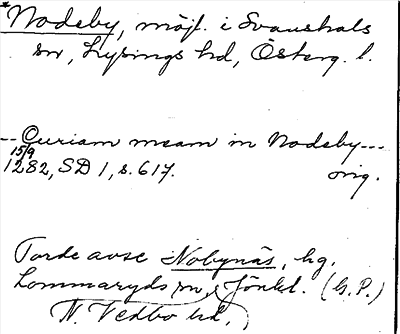 *Nodeby, möjl. i Svanshals
sn, Lysings hd, Österg. l.
-- Curiam meam in Nodeby---
15/9
1282, SD 1, s. 617. orig.
Torde avse Nobynäs, hg,
Lommaryds sn, Jönkl. (G.P.)
N. Vedbo hd.